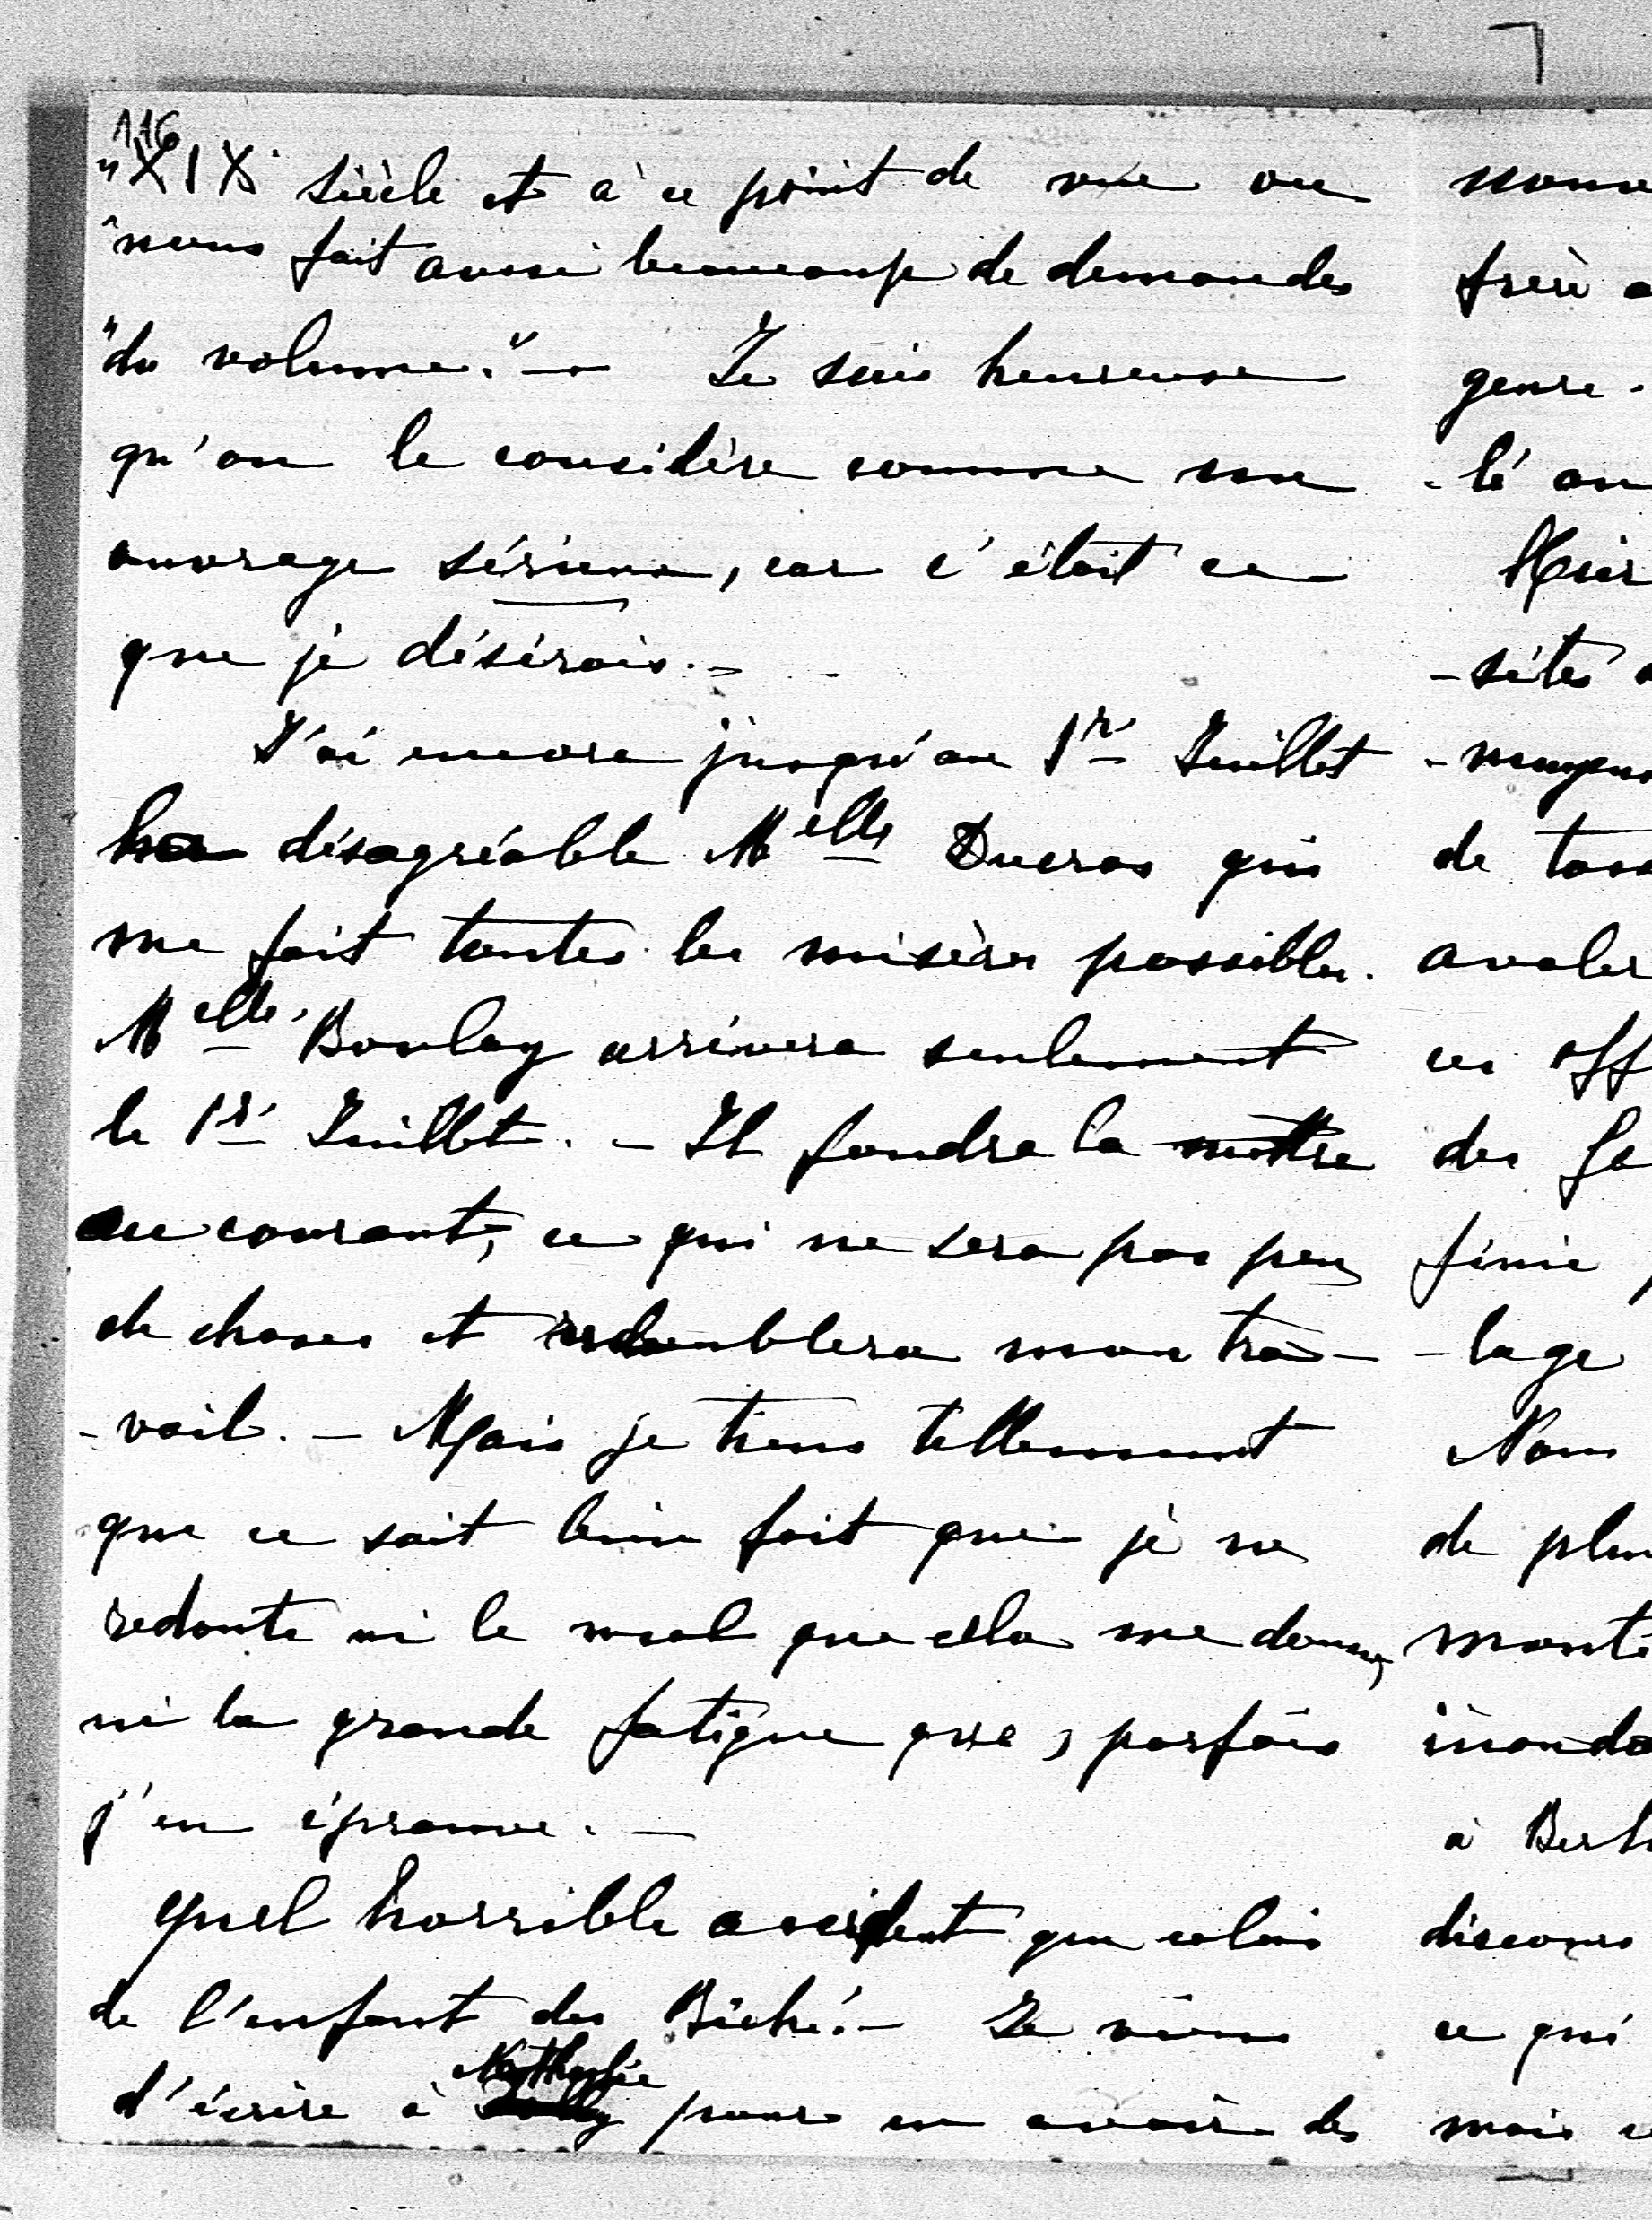 116
"XIXe siècle et à ce point de vue on
"nous fait aussi beaucoup de demandes
"du volume." — Je suis heureuse
qu'on le considère comme un
ouvrage sérieux, car c'était ce
que je désirais. —
J'ai encore jusqu'au 1er Juillet
la désagréable Melle Ducros qui
me fait toutes les misères possibles.
Melle Boulay arrivera seulement
le 1er Juillet. — Il faudra la mettre
au courant, ce qui ne sera pas peu
de choses et redoublera mon tra-
-vail. — Mais je tiens tellement
que ce soit bien fait que je ne
redoute ni le mal que cela me donne,
ni la grande fatigue que, parfois
j'en éprouve. —
Quel horrible accident que celui
de l'enfant des Biché. — Je viens
d'écrire à Nathalie pour en avoir des
frère
genre.
-lé
Hier
-sités
de
avaler
ces off
des
finie
-lage
Nous
de plu
monte
inonda
à Berl
discours
ce qui
mais